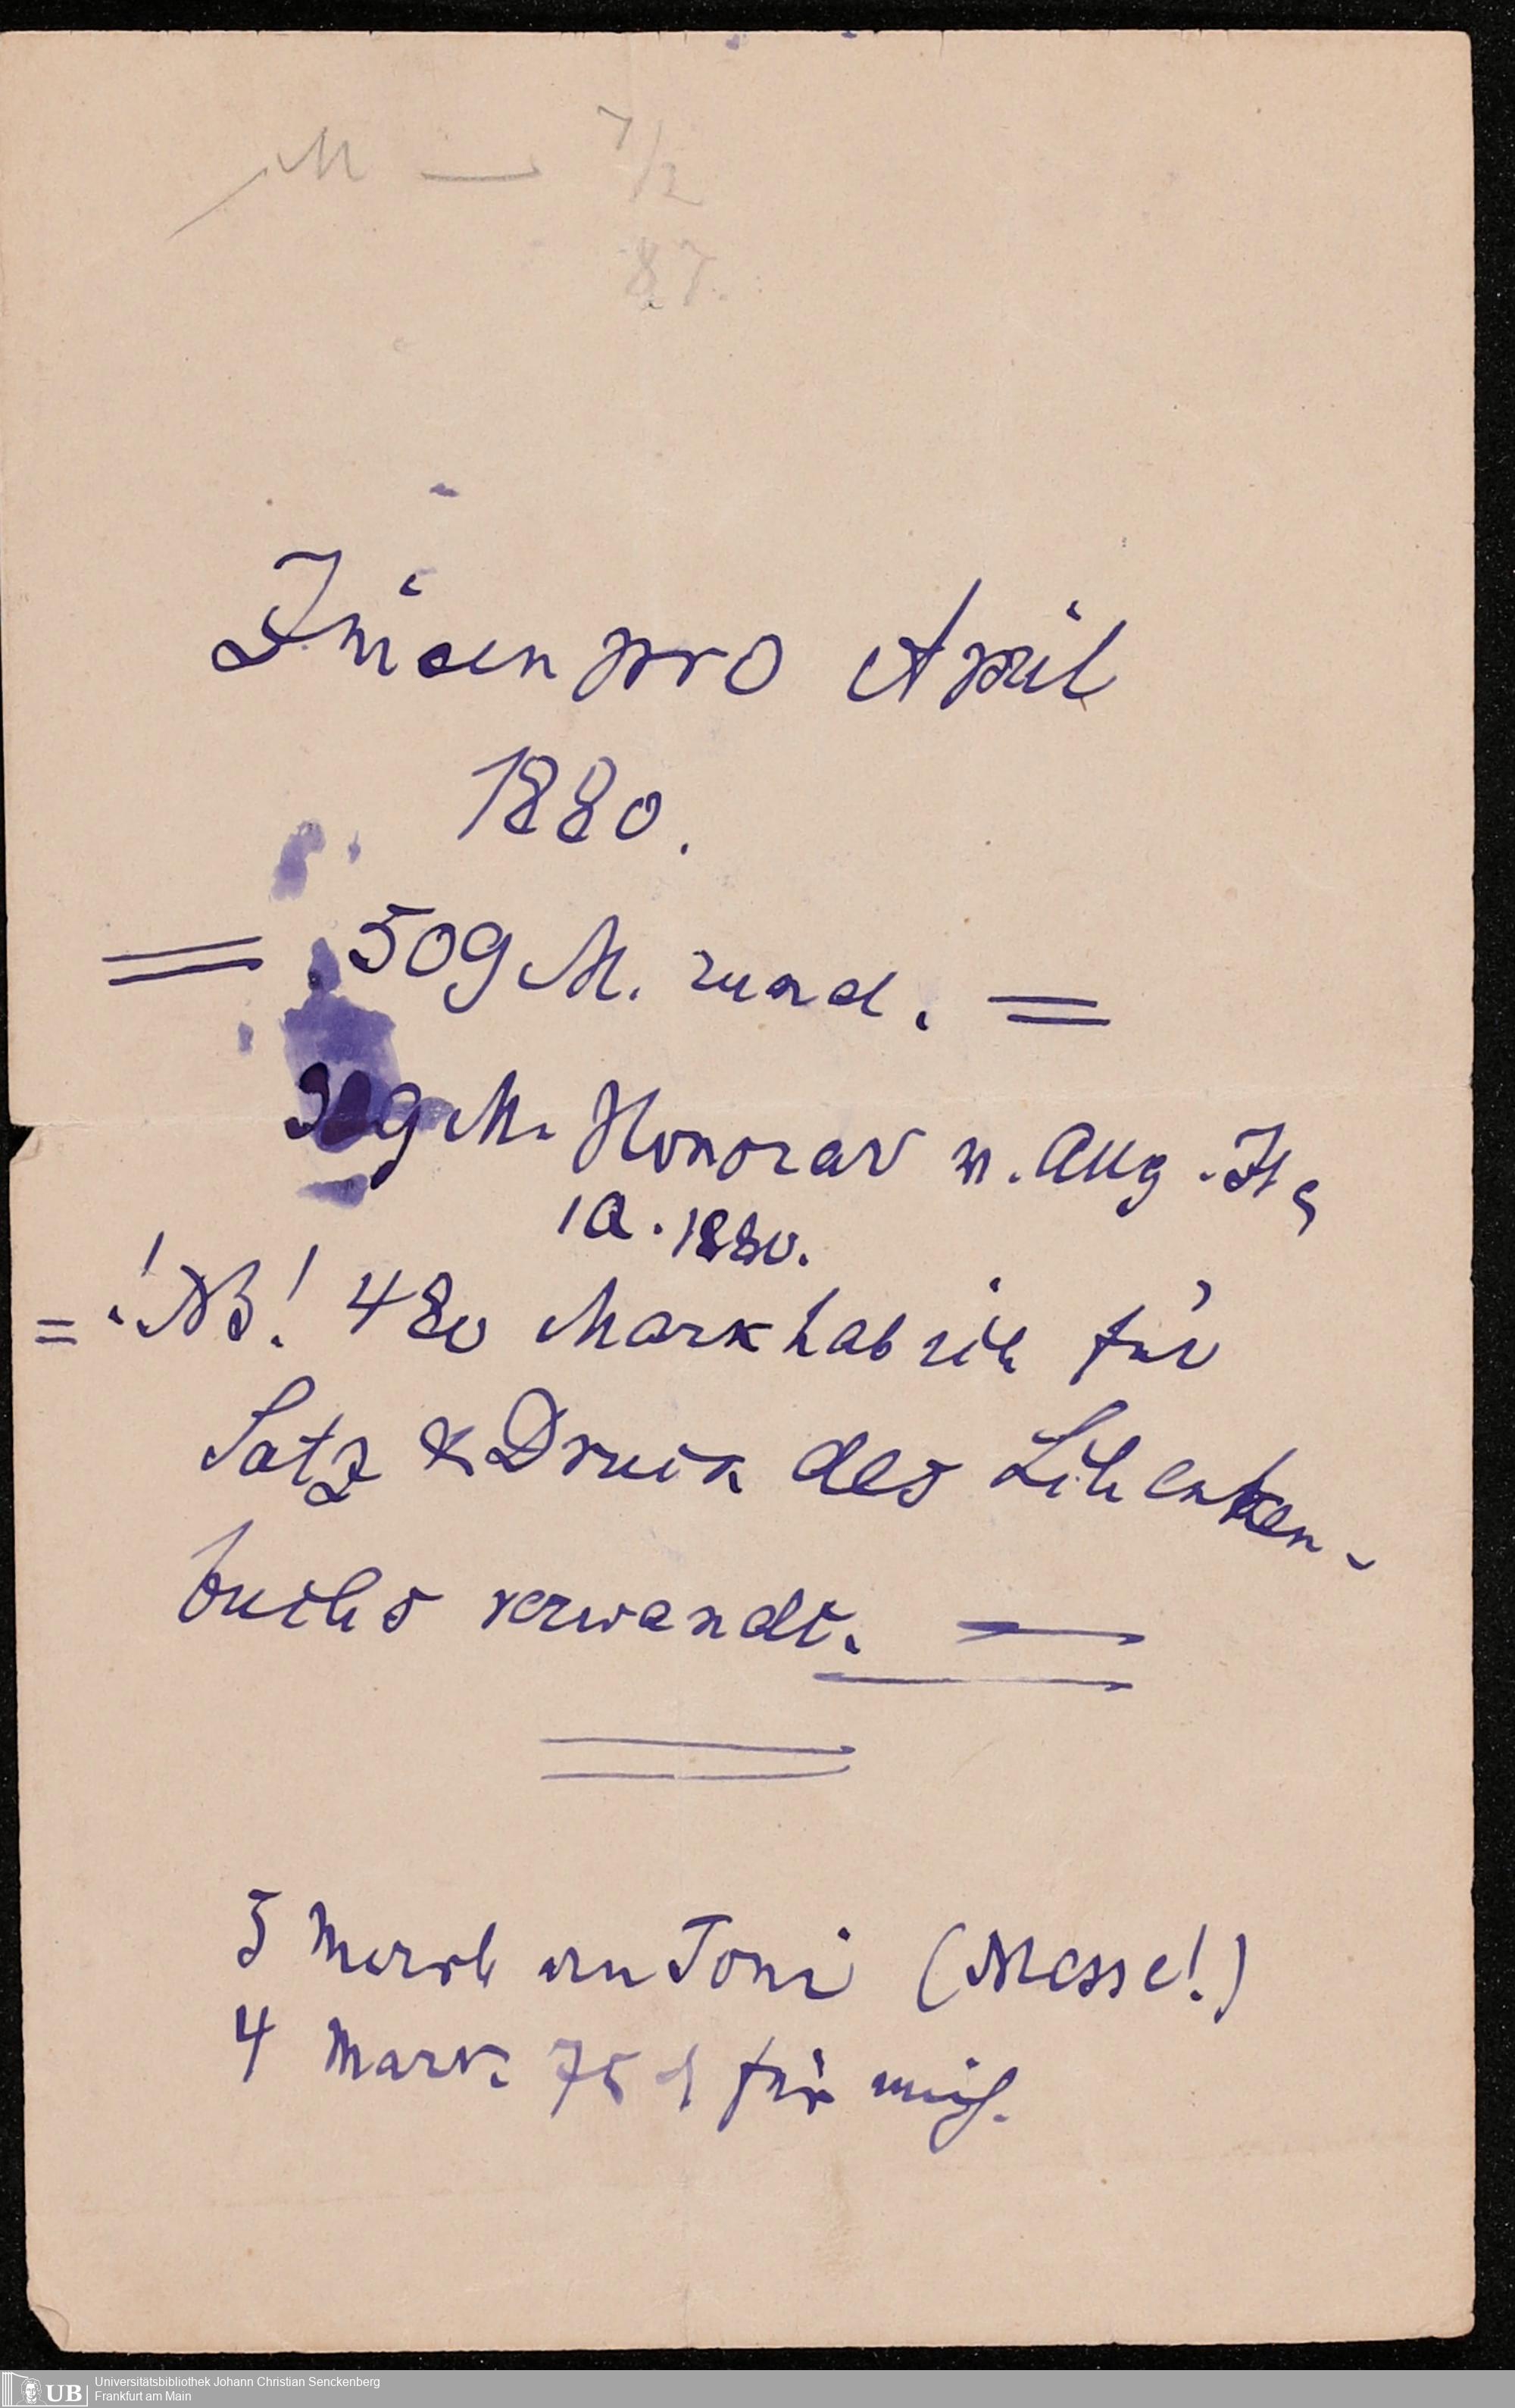 M — 7/2
87.
Zinsen pro April
1880.
= 509 M. rund. =
9 M. Honorar v. Allg.
1 Q. 1880.
= ! NB! 480 Mark hab ich für
Satz & Druck des
buchs verwandt. =
5 Mark an Toni (Messe!)
4 Mark 75 ₰ für mich.
UB
Universitätsbibliothek Johann Christian Senckenberg
Frankfurt am Main